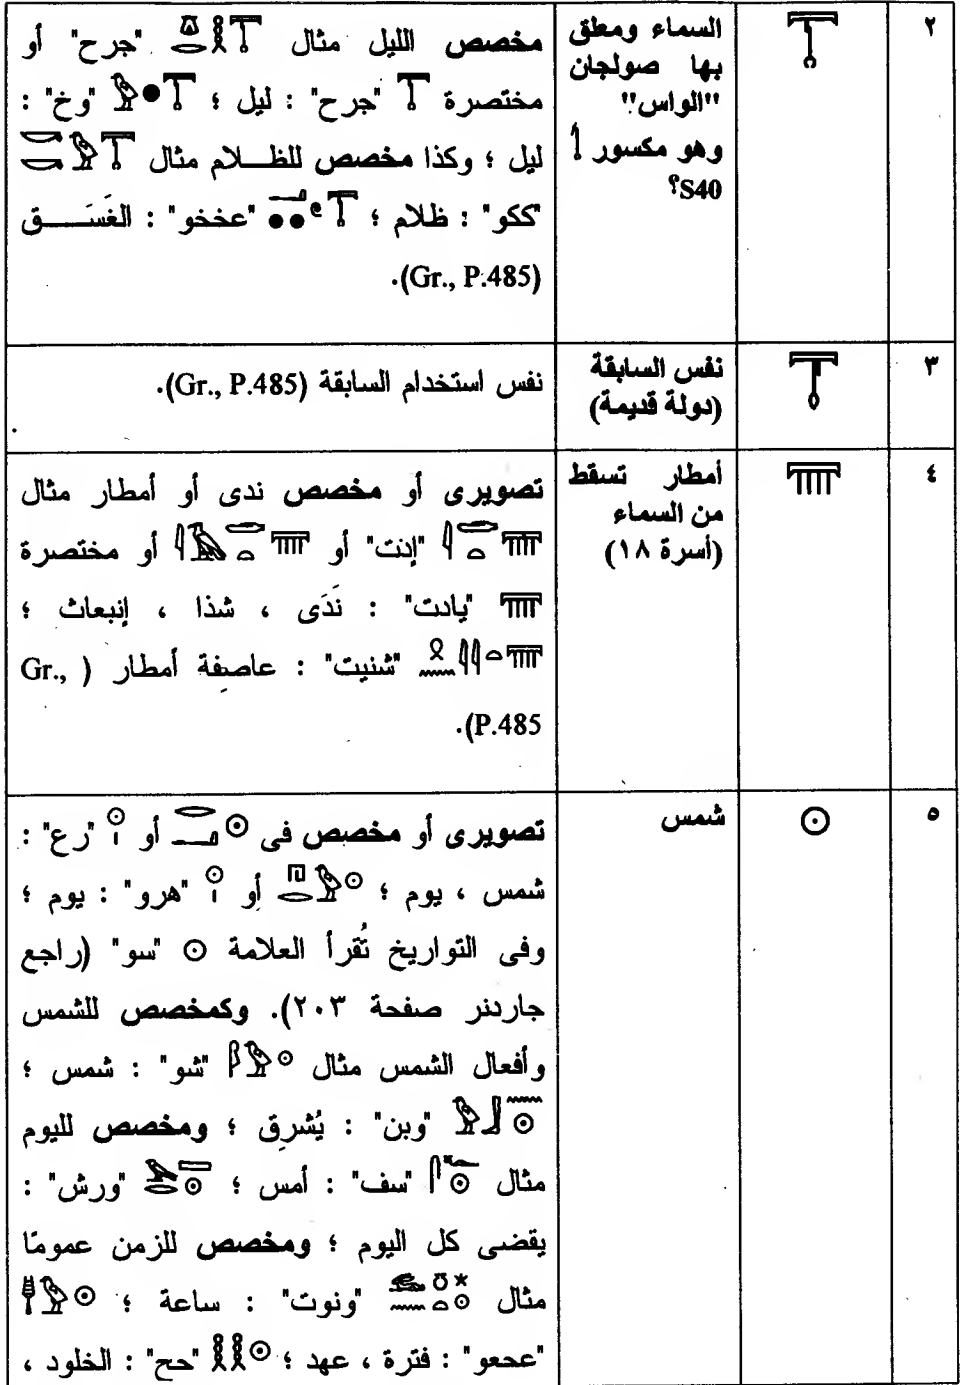 ٢
السماء ومعلق
بها صولجان
"الواس"
وهو مكسور
S40؟
مخصص الليل مثال "جرح" أو
مختصرة "جرح" : ليل ؛ "وخ" :
ليل ؛ وكذا مخصص للظلام مثال
"ككو" : ظلام ؛ "عخخو" : الغَسَق
(Gr., P.485).
٣
نفس السابقة
(دولة قديمة)
نفس استخدام السابقة (Gr., P.485).
٤
أمطار تسقط
من السماء
(أسرة ١٨)
تصويرى أو مخصص ندى أو أمطار مثال
"إدت" أو أو مختصرة
"يادت" : نَدَى ، شذا ، إنبعاث ؛
"شنيت" : عاصفة أمطار (Gr.,
P.485).
٥
𓇳
شمس
تصويرى أو مخصص فى أو "رع" :
شمس ، يوم ؛ أو "هرو" : يوم ؛
وفى التواريخ تُقرأ العلامة 𓇳 "سو" (راجع
جاردنر صفحة ٢٠٣). وكمخصص للشمس
وأفعال الشمس مثال "شو" : شمس ؛
"وبن" : يُشرِق ؛ ومخصص لليوم
مثال "سف" : أمس ؛ "ورش" :
يقضى كل اليوم ؛ ومخصص للزمن عمومًا
مثال "ونوت" : ساعة ؛
"عحعو" : فترة ، عهد ؛ "حح" : الخلود ،